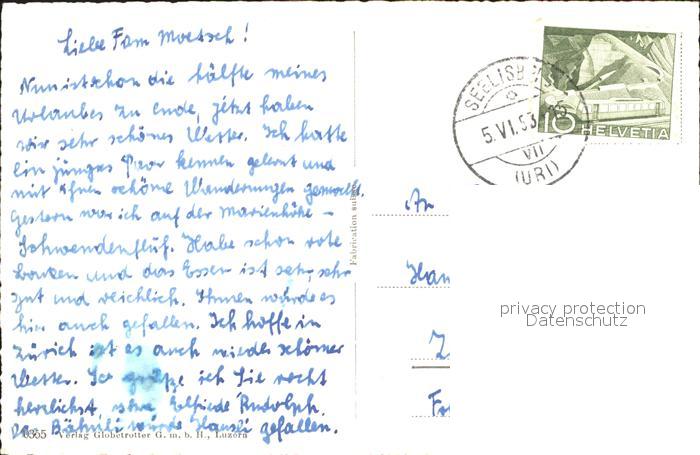 Liebe Fam Moetsch!
Nun ist schon die hälfte meines
Urlaubes zu ende, jetzt haben
wir sehr schönes Wetter. Ich hatte
ein junges Paar kennen gelernt und
mit ihnen schöne Wanderungen gemacht.
Gestern war ich auf der Marienhöhe –
Schwendenfluh. Habe schon rote
backen und das Essen ist sehr, sehr
gut und reichlich. Ihnen würde es
hier auch gefallen. Ich hoffe in
Zürich ist es auch wieder schöner
Wetter. So grüsse ich Sie recht
herzlichst, Elfriede Rudolph.
Bähnli würde Hansli gefallen.
6355 Verlag Globetrotter G. m. b. H., Luzern
Fabrication suisse
SEELISB
5.VI.53
VII
(URI)
10 HELVETIA
An
Han
Z
privacy protection
Datenschutz